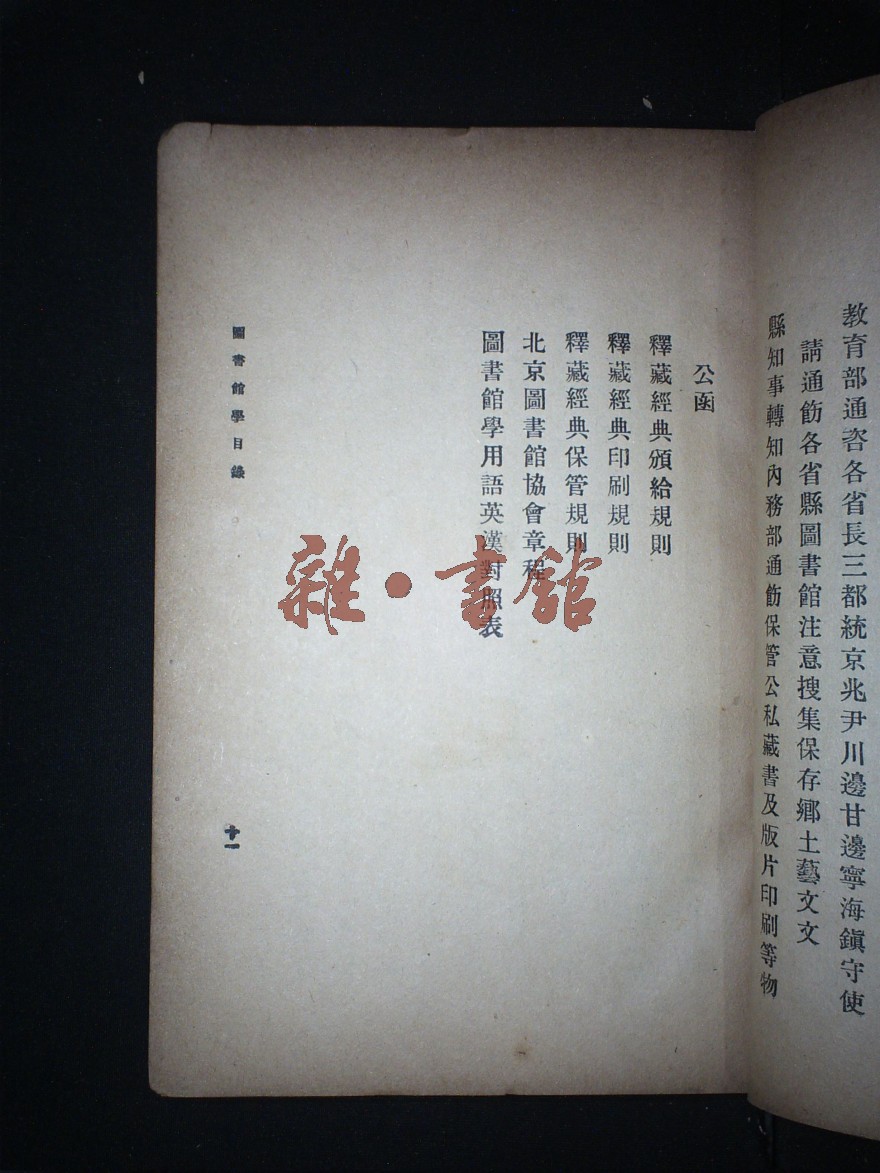 教育部通咨各省長三都統京兆尹川邊甘邊寧海鎭守使
請通飭各省縣圖書館注意搜集保存鄉土藝文文
縣知事轉知內務部通飭保管公私藏書及版片印刷等物
公函
釋藏經典頒給規則
釋藏經典印刷規則
釋藏經典保管規則
北京圖書館協會章程
圖書館學用語英漢對照表
圖書館學目錄
十一
雜·書館